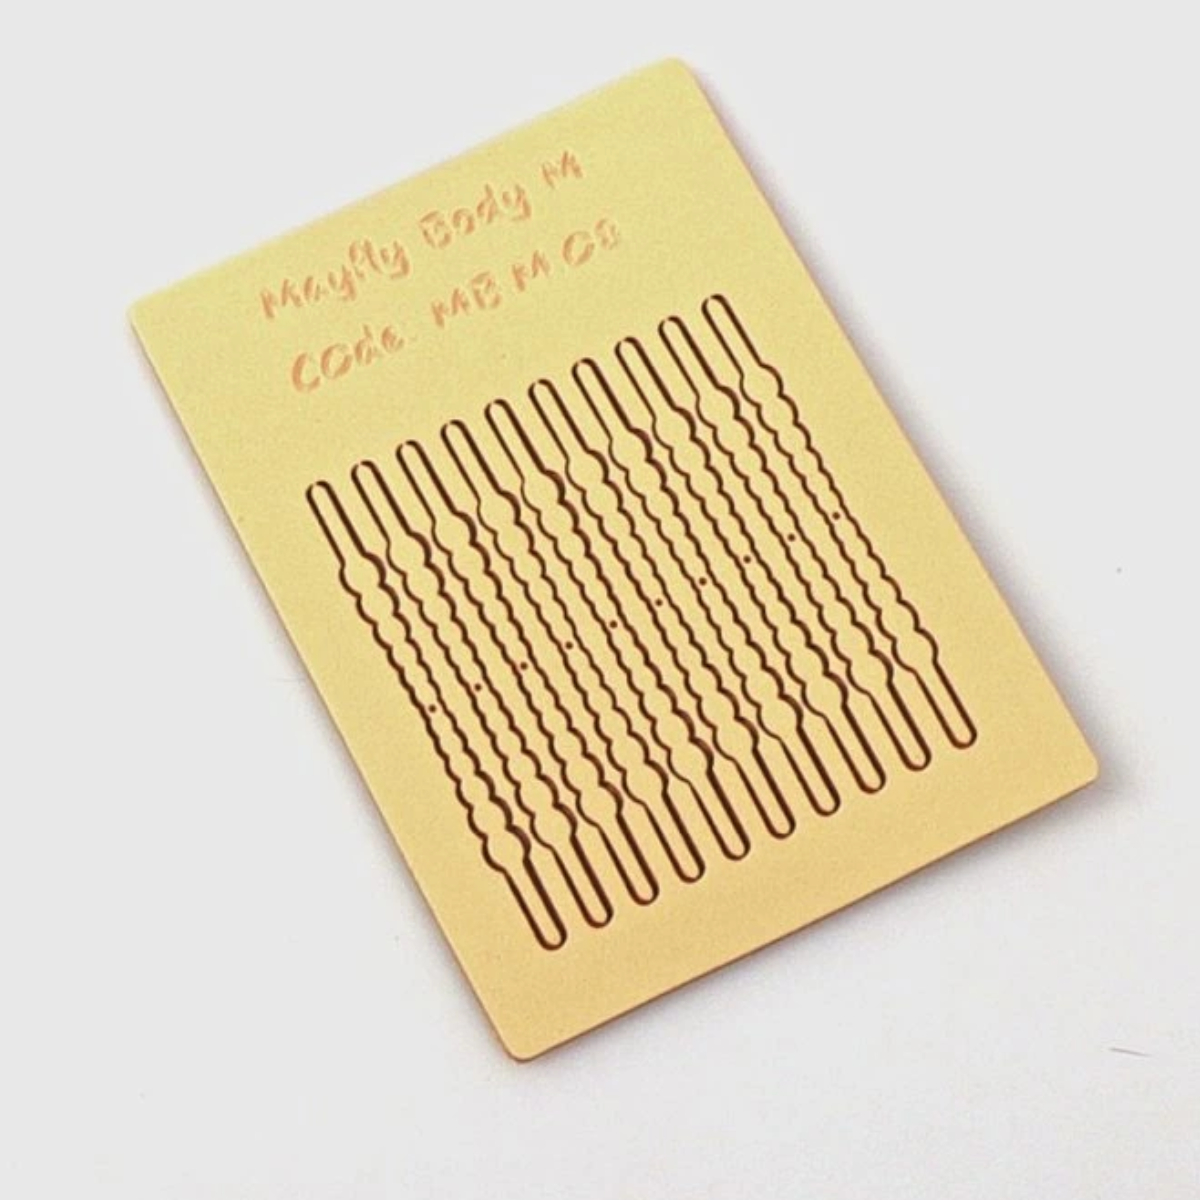 Mayfly Body M
Code. MB M 08